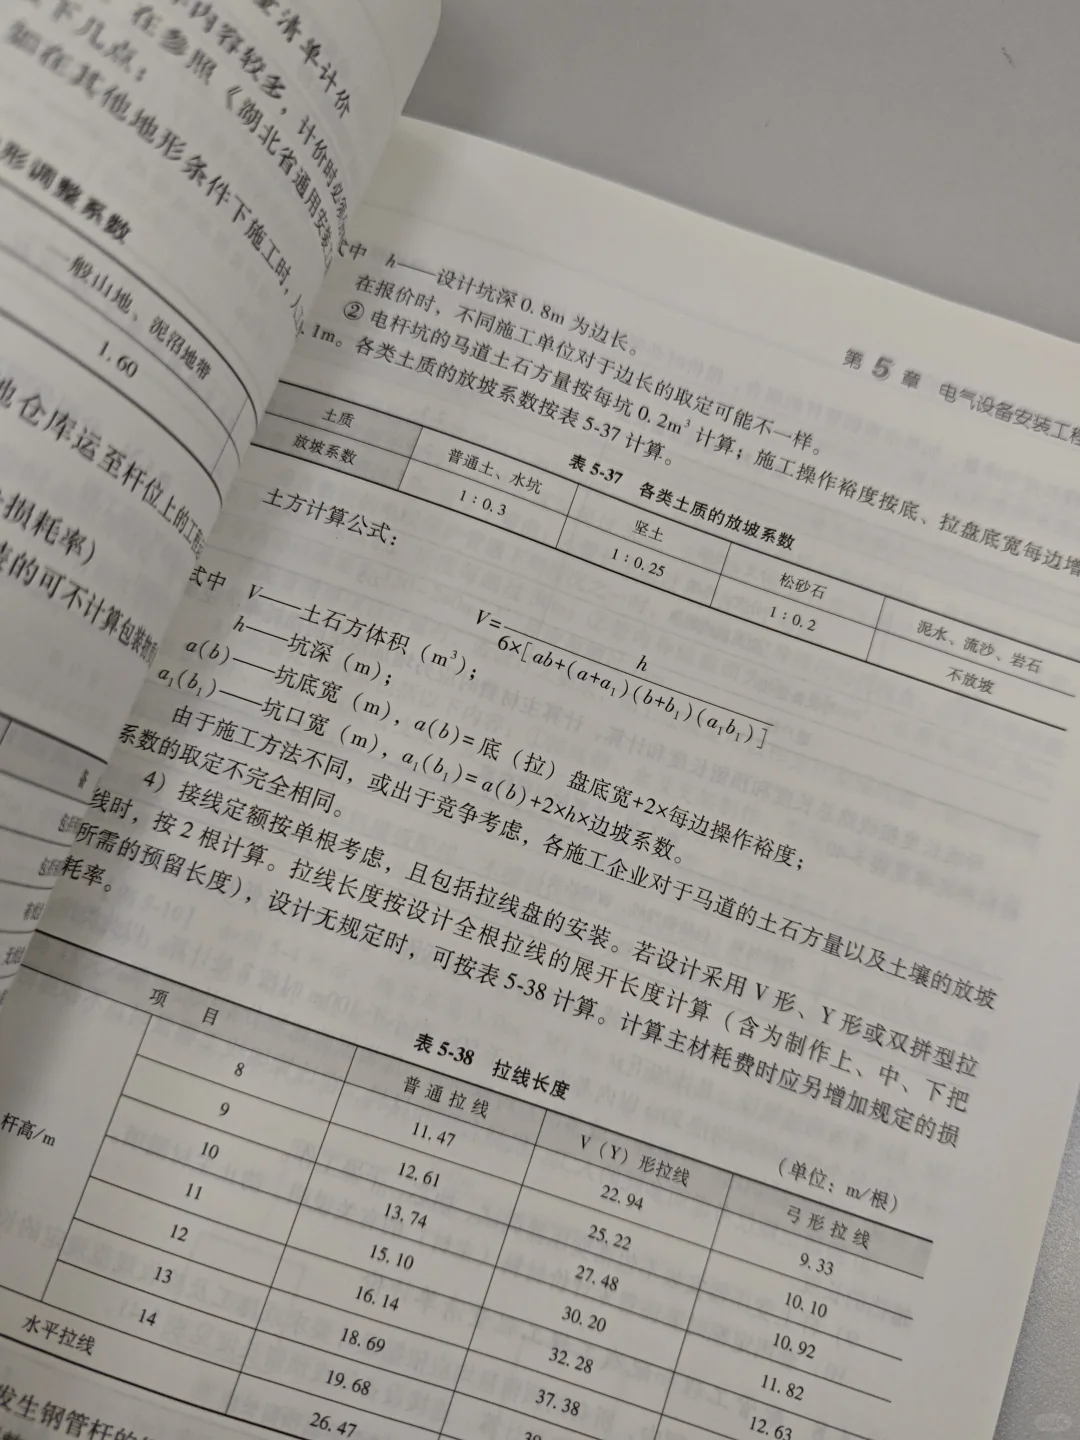 清单计价
内容较多，计价时必须
在参照《湖北省通用安装
下几点：
如在其他地形条件下施工时，人
形调整系数
一般山地、泥沼地带
1.60
地仓库运至杆位上的工程
损耗率）
的可不计算包装物
第5章 电气设备安装工程
式中 h——设计坑深0.8m为边长。
在报价时，不同施工单位对于边长的取定可能不一样。
② 电杆坑的马道土石方量按每坑0.2m³计算；施工操作裕度按底、拉盘底宽每边增
1m。各类土质的放坡系数按表5-37计算。
表5-37 各类土质的放坡系数
土质 普通土、水坑 坚土 松砂石 泥水、流沙、岩石
放坡系数 1：0.3 1：0.25 1：0.2 不放坡
土方计算公式：
V=h/6×[ab+(a+a₁)(b+b₁)(a₁b₁)]
式中 V——土石方体积（m³）；
h——坑深（m）；
a(b)——坑底宽（m），a(b)=底（拉）盘底宽+2×每边操作裕度；
a₁(b₁)——坑口宽（m），a₁(b₁)=a(b)+2×h×边坡系数。
由于施工方法不同，或出于竞争考虑，各施工企业对于马道的土石方量以及土壤的放坡
系数的取定不完全相同。
4）接线定额按单根考虑，且包括拉线盘的安装。若设计采用V形、Y形或双拼型拉
线时，按2根计算。拉线长度按设计全根拉线的展开长度计算（含为制作上、中、下把
所需的预留长度），设计无规定时，可按表5-38计算。计算主材耗费时应另增加规定的损
耗率。
表5-38 拉线长度
（单位：m/根）
项 目 普通拉线 V（Y）形拉线 弓形拉线
杆高/m
8 11.47 22.94 9.33
9 12.61 25.22 10.10
10 13.74 27.48 10.92
11 15.10 30.20 11.82
12 16.14 32.28 12.63
13 18.69 37.38
14 19.68
水平拉线 26.47
发生钢管杆的